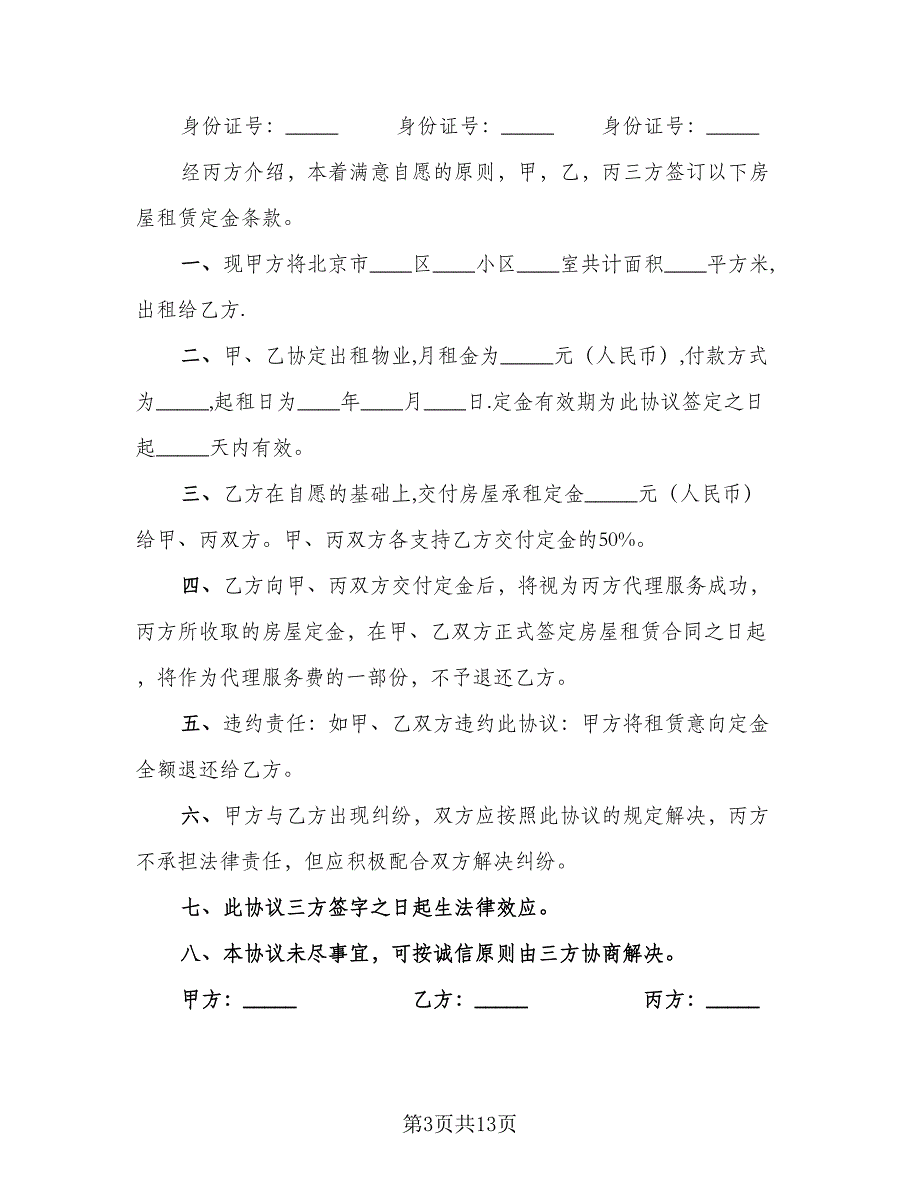 身份证号：_____ 身份证号：_____ 身份证号：_____
经丙方介绍，本着满意自愿的原则，甲，乙，丙三方签订以下房
屋租赁定金条款。
一、现甲方将北京市____区____小区____室共计面积____平方米,
出租给乙方.
二、甲、乙协定出租物业,月租金为_____元（人民币）,付款方式
为_____,起租日为____年____月____日.定金有效期为此协议签定之日
起_____天内有效。
三、乙方在自愿的基础上,交付房屋承租定金_____元（人民币）
给甲、丙双方。甲、丙双方各支持乙方交付定金的50%。
四、乙方向甲、丙双方交付定金后，将视为丙方代理服务成功，
丙方所收取的房屋定金，在甲、乙双方正式签定房屋租赁合同之日起
，将作为代理服务费的一部份，不予退还乙方。
五、违约责任：如甲、乙双方违约此协议：甲方将租赁意向定金
全额退还给乙方。
六、甲方与乙方出现纠纷，双方应按照此协议的规定解决，丙方
不承担法律责任，但应积极配合双方解决纠纷。
七、此协议三方签字之日起生法律效应。
八、本协议未尽事宜，可按诚信原则由三方协商解决。
甲方：_____ 乙方：_____ 丙方：_____
第3页共13页